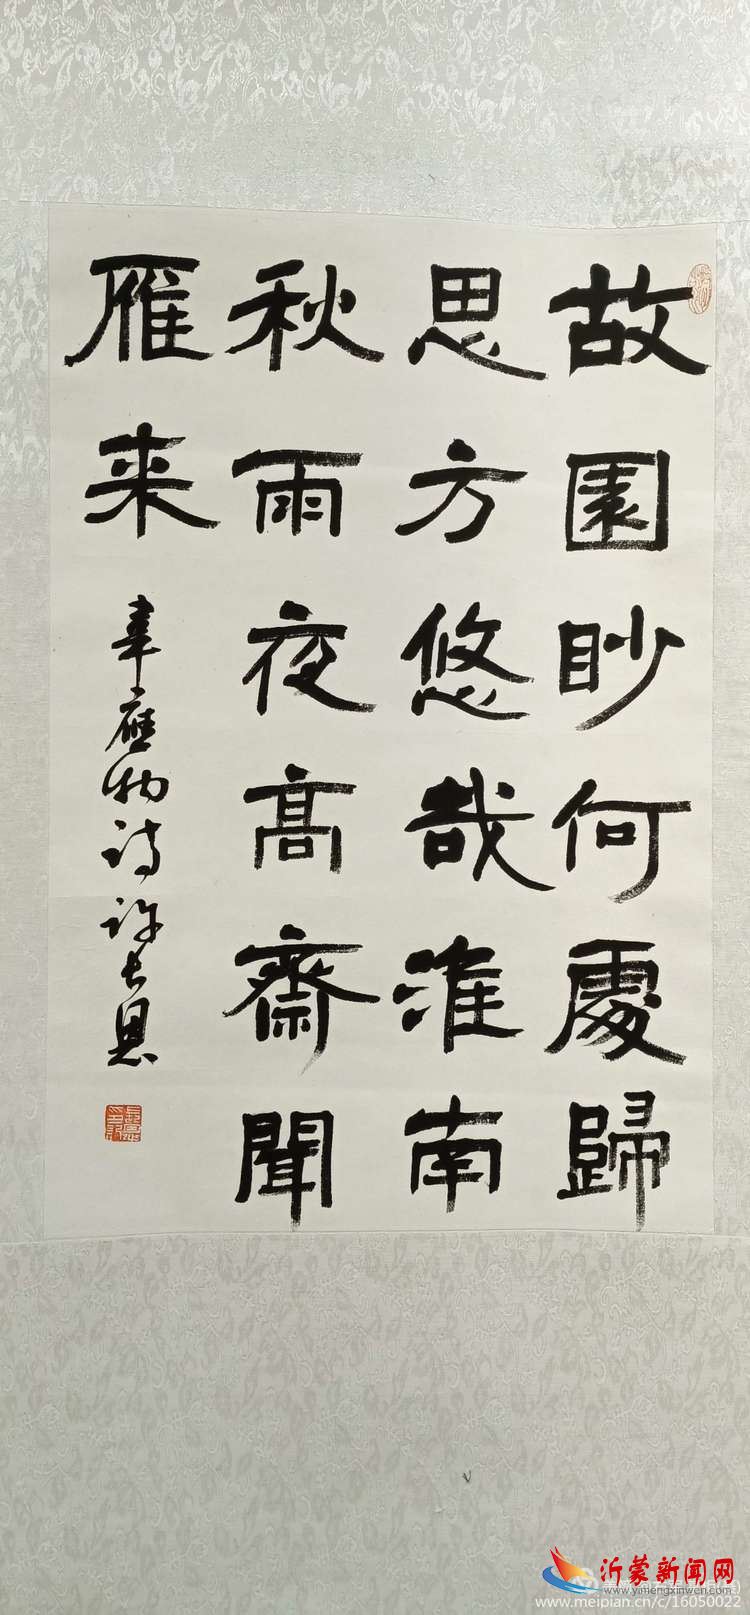 故園眇何處歸
思方悠哉淮南
秋雨夜高齋聞
雁来
韋應物詩許長恩
沂蒙新闻网
www.yimengxinwen.com
www.meipian.cn/c/16050022